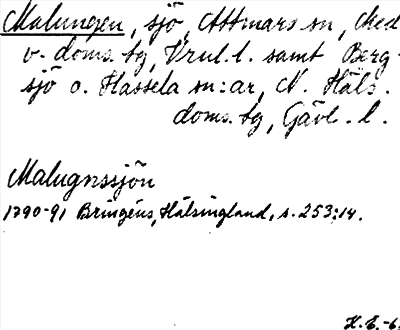 Malungen, sjö, Attmars sn, Med
v. doms. tg, Vnul. l. samt Berg-
sjö o. Hassela sn:ar, N. Häls.
doms. tg, Gävl. l.
Malugnssjön
1790-91 Bringéus, Hälsingland, s. 253:14.